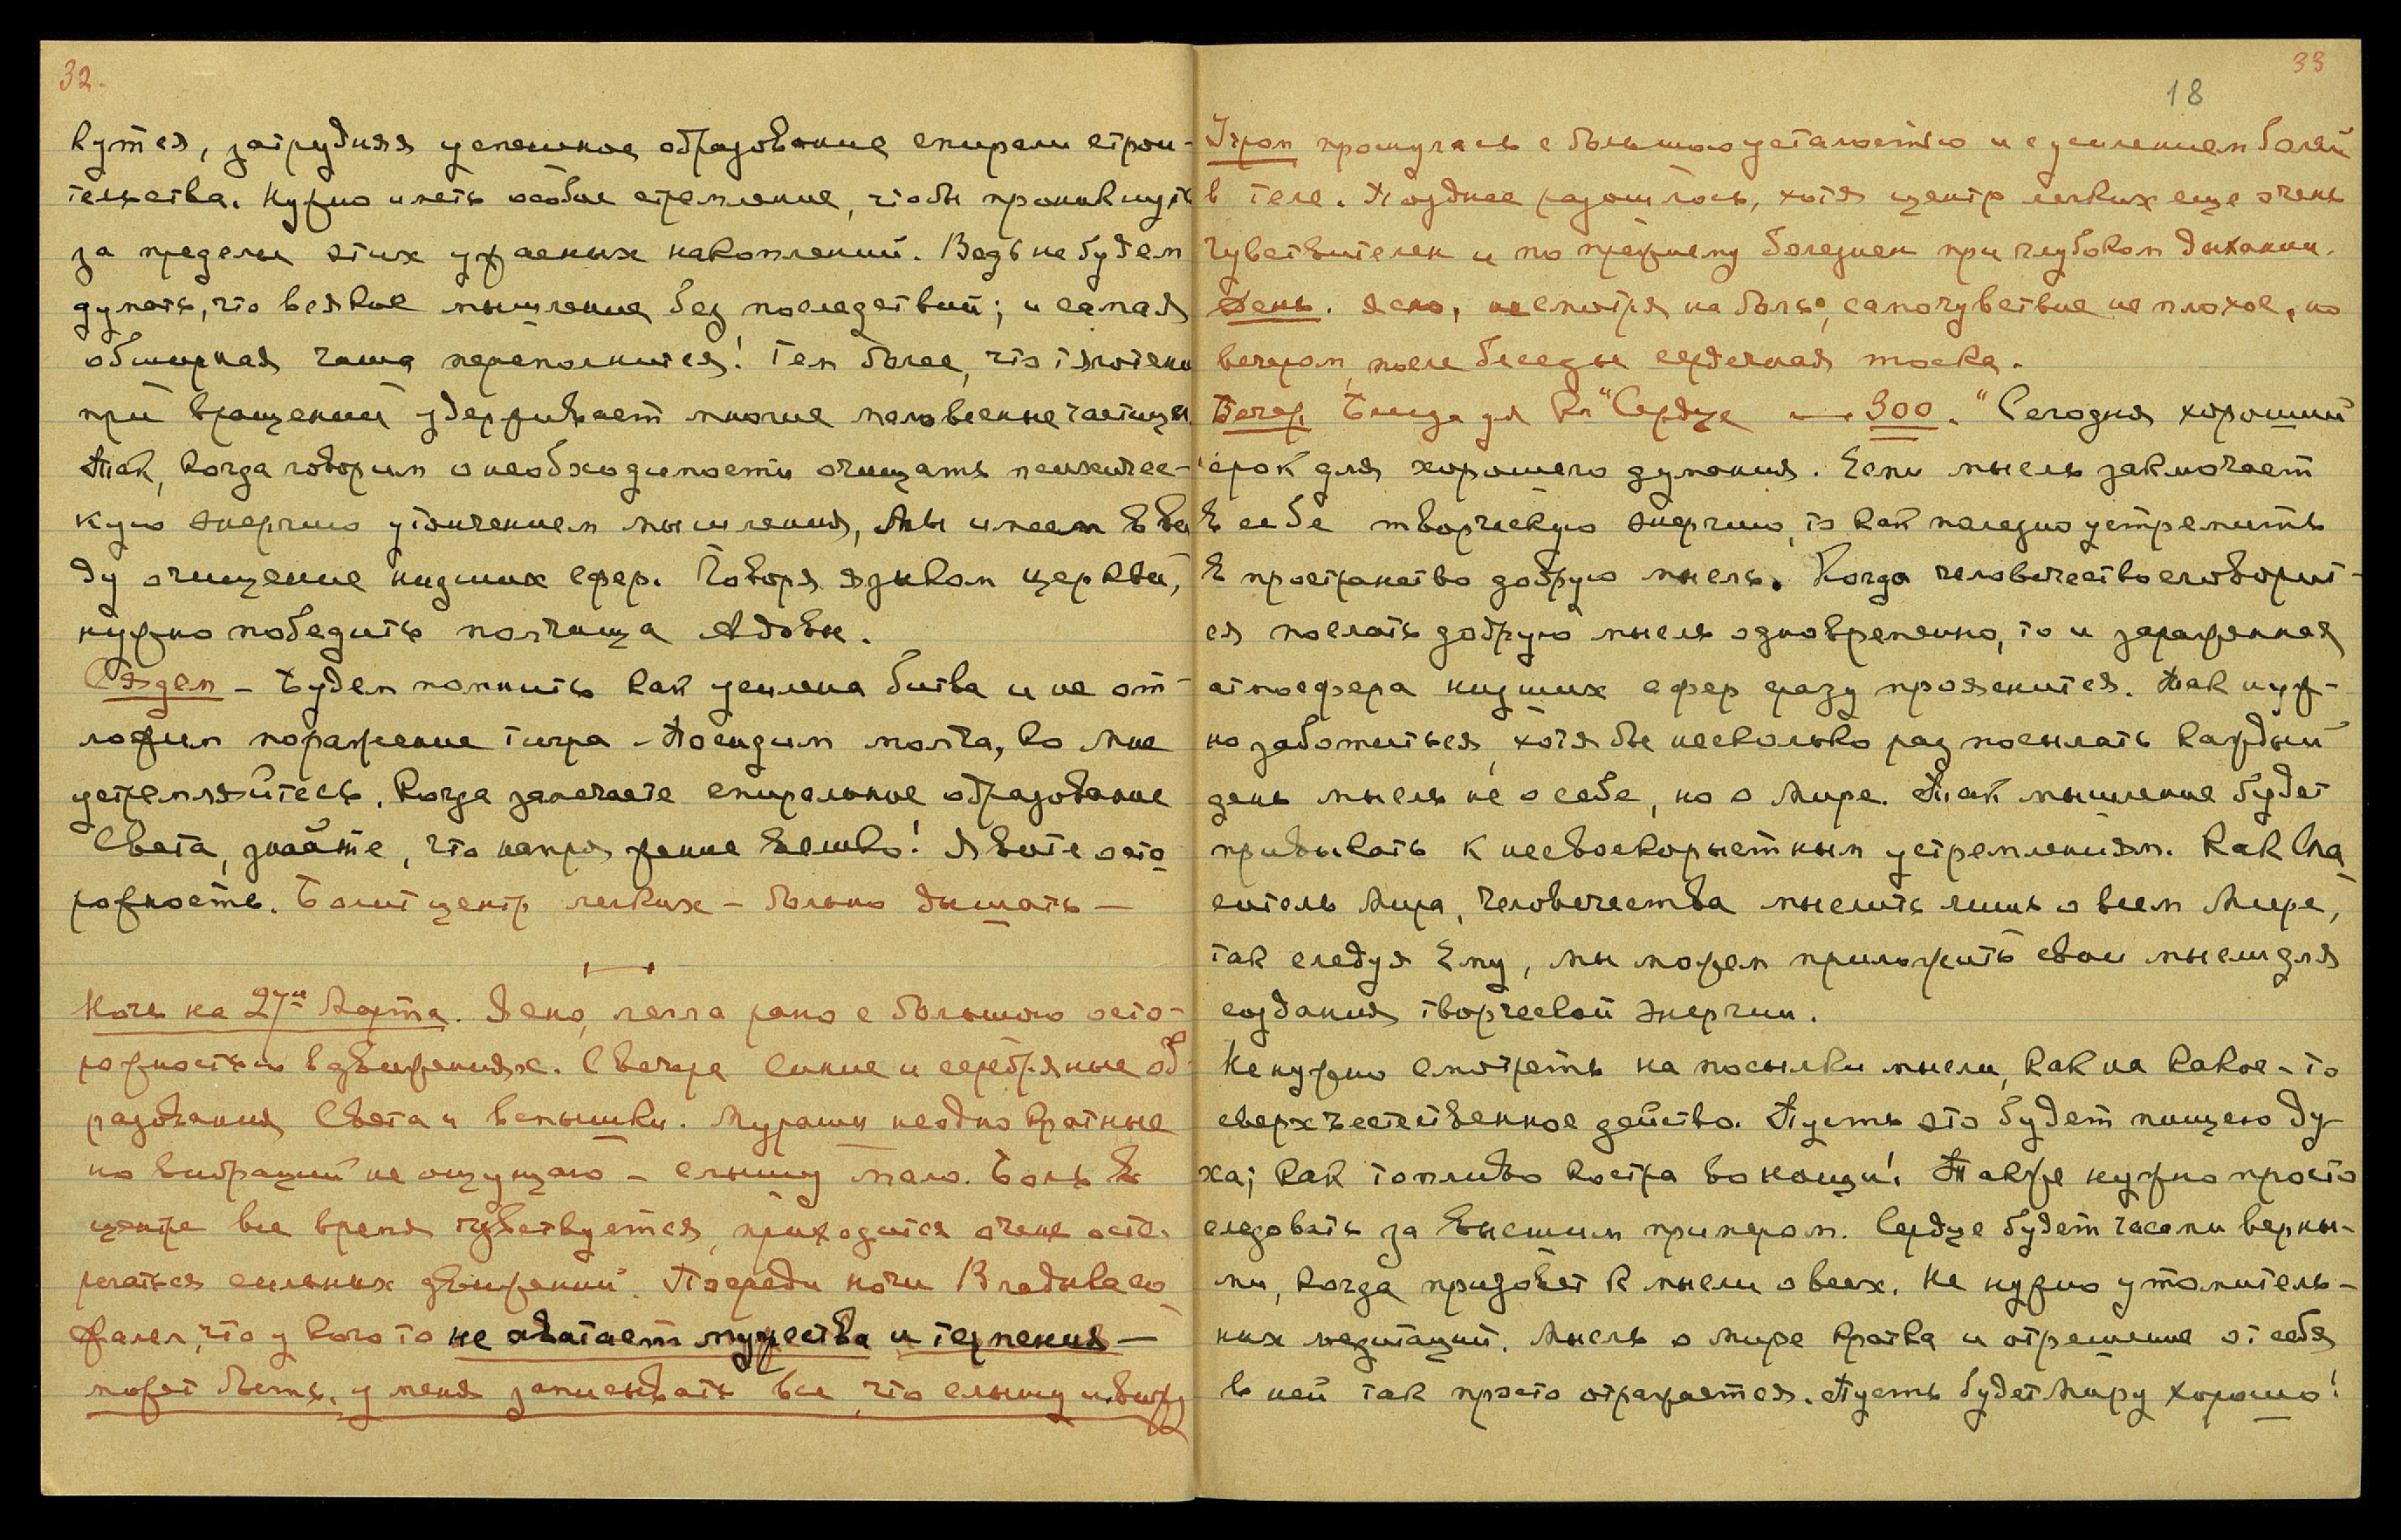 32.
кутся, затрудняя успешное образование спирали строи-
тельства. Нужно иметь особое стремление, чтобы проникнуть
за пределы этих ужасных накоплений. Ведь не будем
думать, что всякое мышление без последствий; и самая
обширная чаша переполнится! Тем более, что тяготение
при вращении удерживает многие маловесные частицы.
Так, когда говорим о необходимости очищать психичес-
кую энергию утончением мышления, Мы имеем в ви
ду очищение низших сфер. Говоря языком церкви,
нужно победить полчища Адовы.
Сядем – Будем помнить как усилена битва и не от-
ложим поражение тигра – Посидим молча, ко Мне
устремляйтесь. Когда замечаете спиральное образование
Света, знайте, что напряжение велико! Явите осто
рожность. Болит центр легких – больно дышать —
Ночь на 27ое Марта. Ясно, легла рано с большою осто-
рожностью в движениях. С вечера синие и серебряные об-
разования Света и вспышки. Мурашки неоднократные
но вибраций не ощущаю – слышу мало. Боль в
центре все время чувствуется, приходится очень осте-
регаться сильных движений. Посреди ночи Владыка со
жалел, что у кого то не хватает мужества и терпения —
может быть, у меня записывать все, что слышу и вижу
33
18
Утром проснулась с большою усталостью и с усилением болей
в теле. Позднее разошлось, хотя центр легких еще очень
чувствителен и по прежнему болезнен при глубоком дыхании.
День. Ясно, несмотря на боль, самочувствие не плохое, но
вечером, после беседы сердечная тоска.
Вечер. Беседа для Кн. "Сердце — 300. "Сегодня хороший
срок для хорошего думания. Если мысль заключает
в себе творческую энергию, то как полезно устремить
в пространство добрую мысль. Когда человечество сговорит-
ся послать добрую мысль одновременно, то и зараженная
атмосфера низших сфер сразу прояснится. Так нуж-
но заботиться, хотя бы несколько раз посылать каждый
день мысль не о себе, но о Мире. Так мышление будет
привыкать к несвоекорыстным устремлениям. Как Спа
ситель Мира, Человечества мыслить лишь о всем Мире,
так следуя Ему, мы можем приложить свои мысли для
создания творческой энергии.
Не нужно смотреть на посылки мысли, как на какое-то
сверхъестественное действо. Пусть это будет пищею ду-
ха; как топливо костра во нощи! Также нужно просто
следовать за Высшим примером. Сердце будет часами верны-
ми, когда призовет к мысли о всех. Не нужно утомитель-
ных медитаций. Мысль о Мире кратка и отрешение от себя
в ней так просто отражается. Пусть будет Миру хорошо!